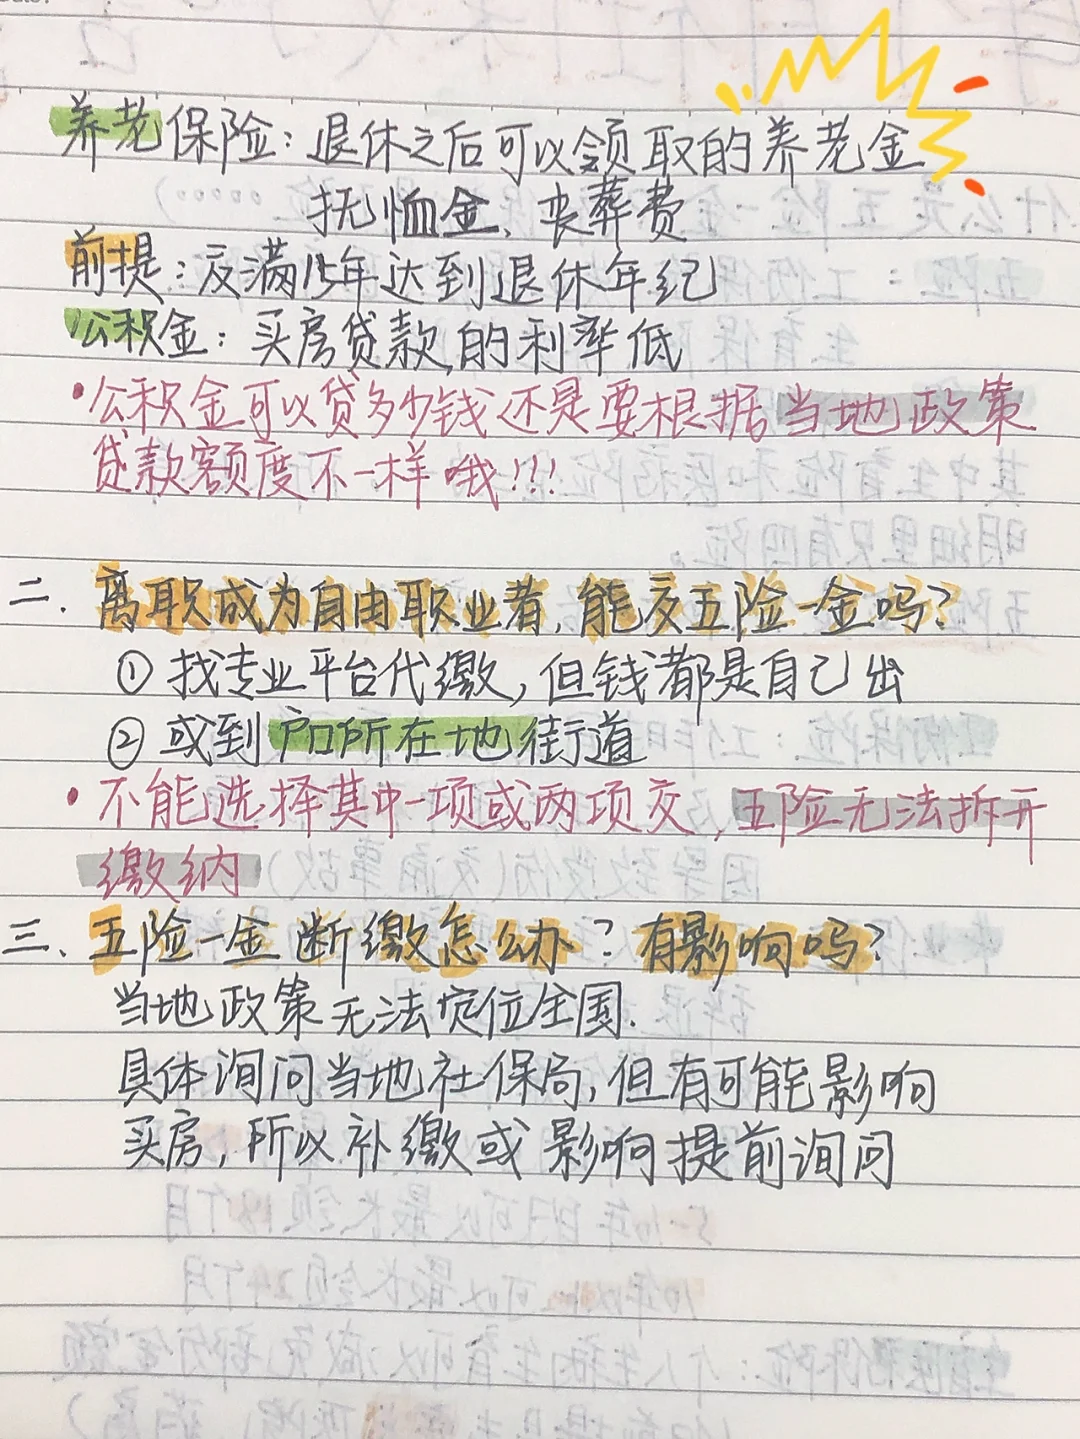 养老保险：退休之后可以领取的养老金
抚恤金、丧葬费
前提：交满15年达到退休年纪
公积金：买房贷款的利率低
·公积金可以贷多少钱还是要根据当地政策
贷款额度不一样哦!!!
二. 离职成为自由职业者,能交五险一金吗?
① 找专业平台代缴,但钱都是自己出
② 或到户口所在地街道
·不能选择其中一项或两项交,五险无法拆开
缴纳
三、五险一金断缴怎么办?有影响吗?
当地政策无法定位全国.
具体询问当地社保局,但有可能影响
买房,所以补缴或影响提前询问